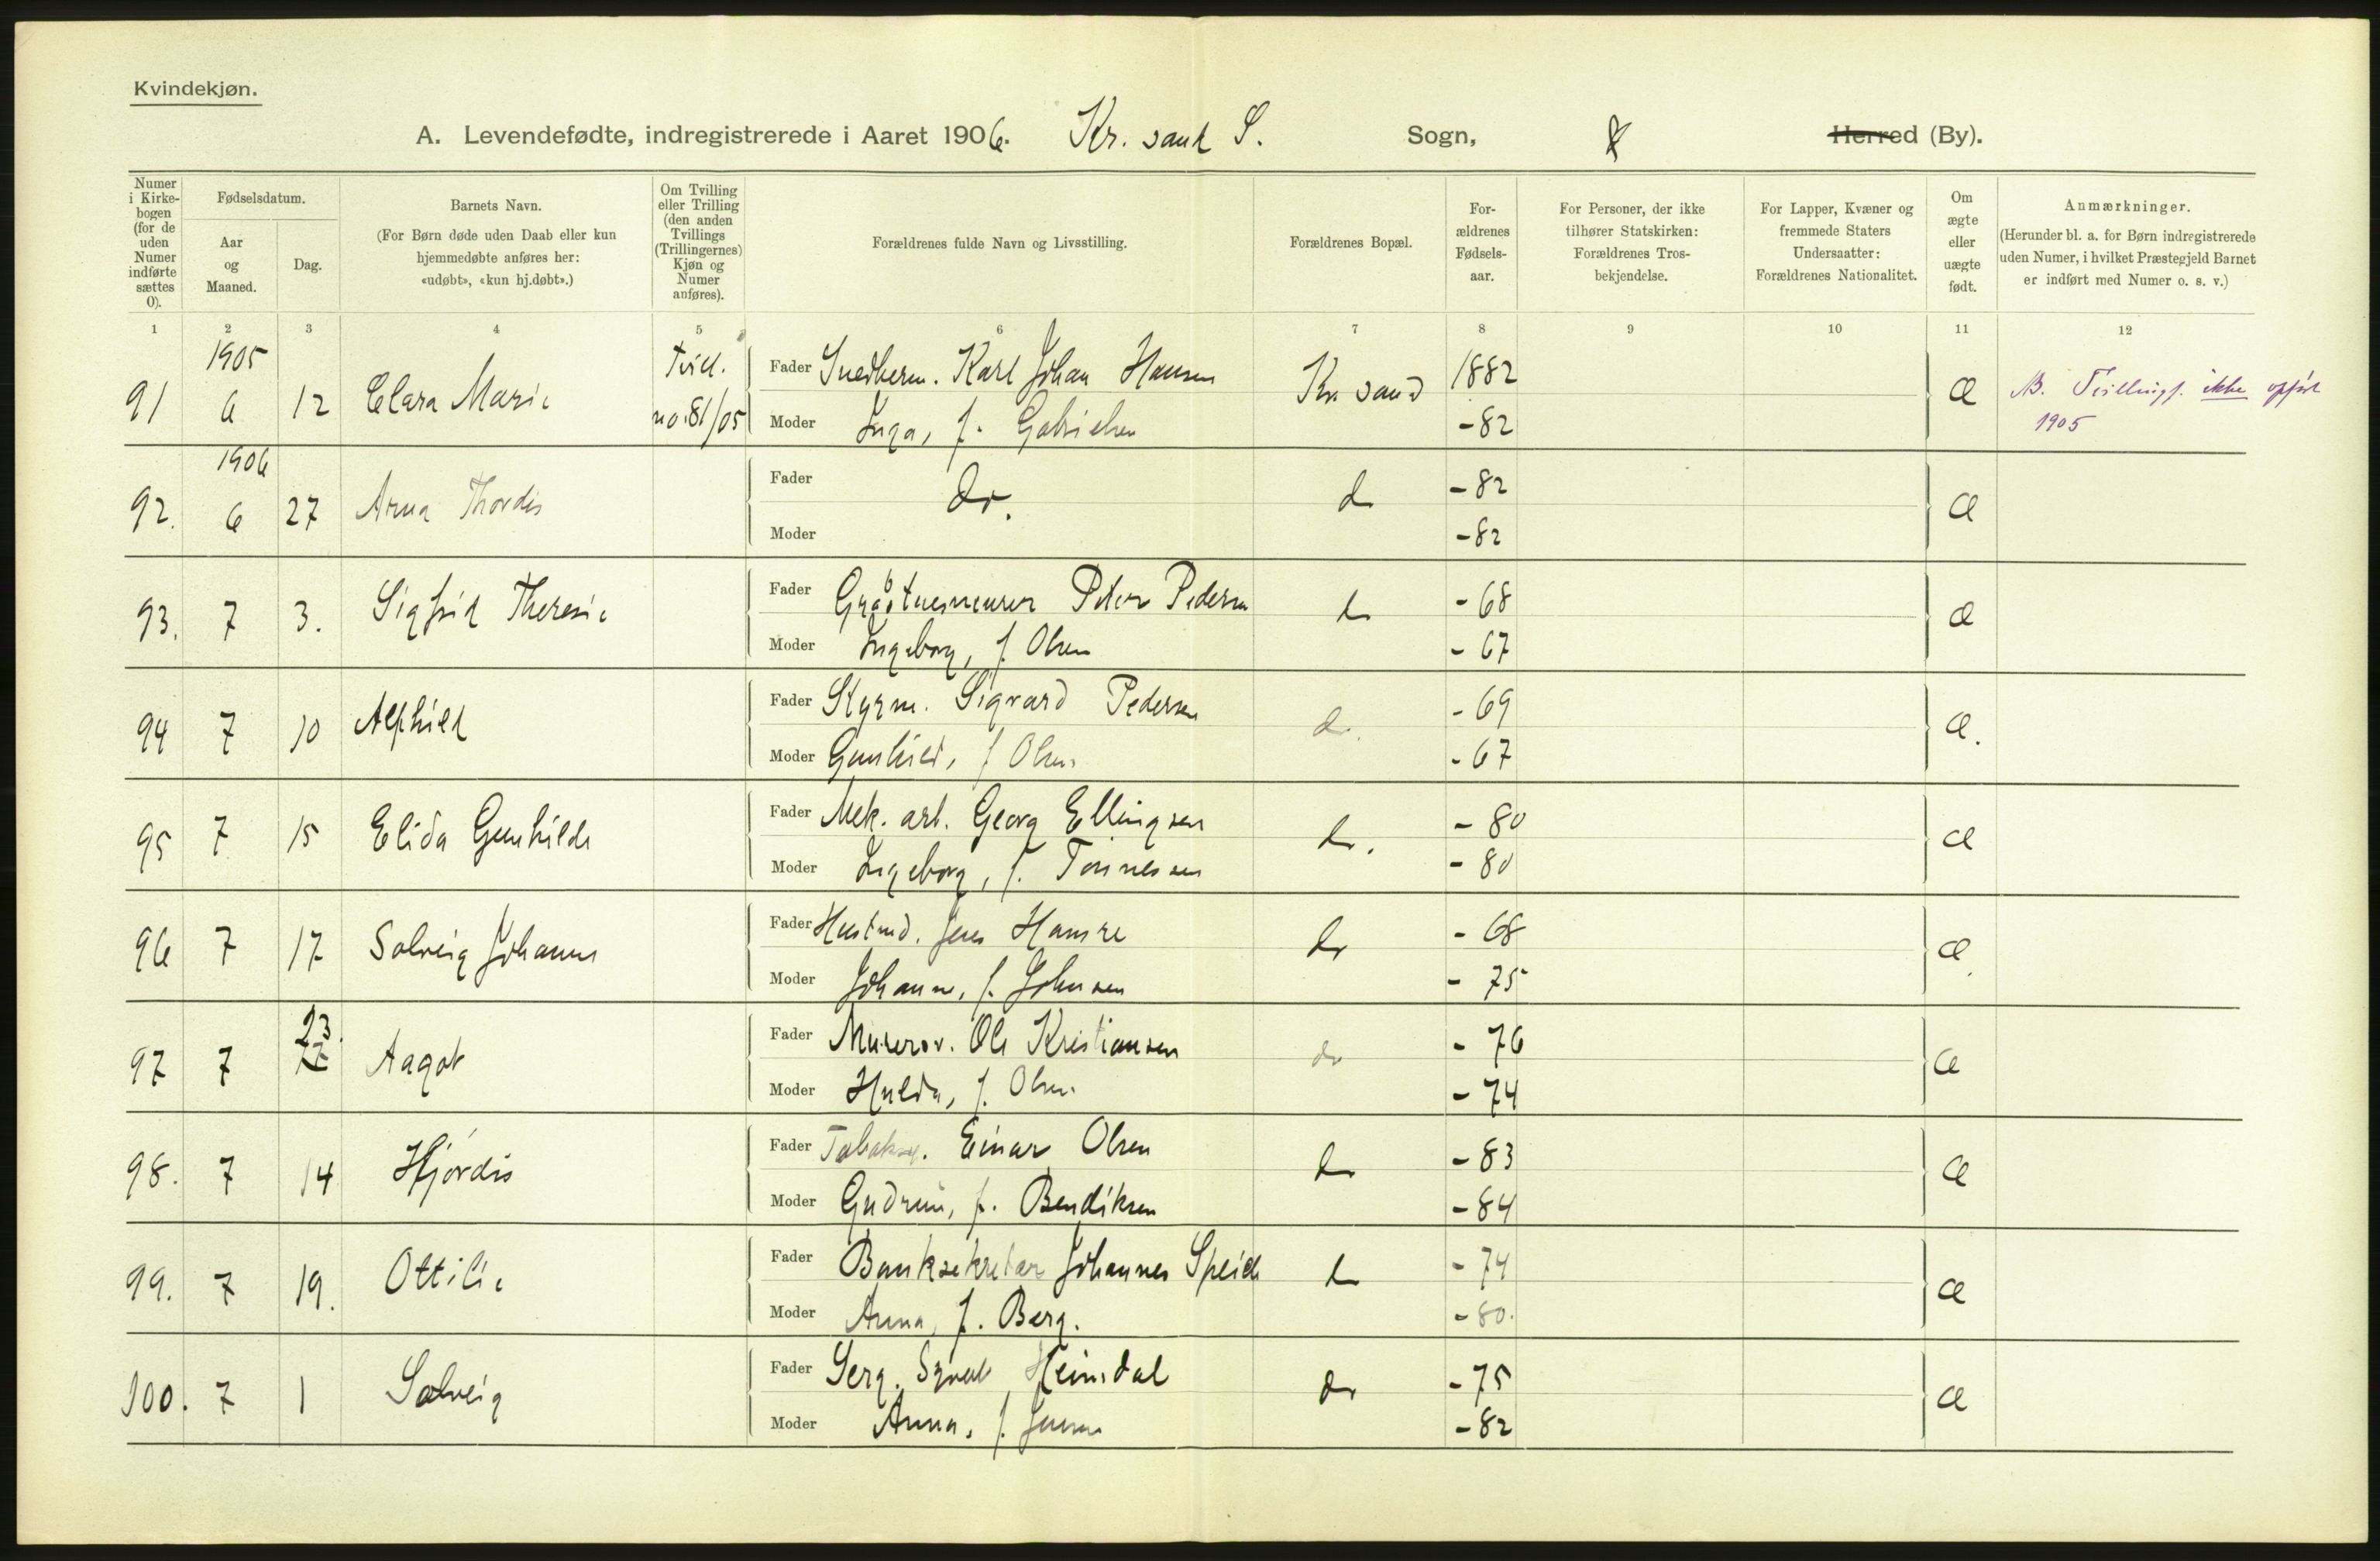 Kvindekjøn.
A. Levendefødte, indregistrerede i Aaret 1906. Kr. sand S. Sogn, Herred (By).
Numer i Kirkebogen (for de uden Numer indførte sættes 0).
Fødselsdatum.
Aar og Maaned.
Dag.
Barnets Navn.
(For Børn døde uden Daab eller kun hjemmedøbte anføres her: «udøbt», «kun hj.døbt».)
Om Tvilling eller Trilling (den anden Tvillings (Trillingernes) Kjøn og Numer anføres).
Forældrenes fulde Navn og Livsstilling.
Forældrenes Bopæl.
Forældrenes Fødselsaar.
For Personer, der ikke tilhører Statskirken: Forældrenes Trosbekjendelse.
For Lapper, Kvæner og fremmede Staters Undersaatter: Forældrenes Nationalitet.
Om ægte eller uægte født.
Anmærkninger.
(Herunder bl. a. for Børn indregistrerede uden Numer, i hvilket Præstegjeld Barnet er indført med Numer o. s. v.)
1 2 3 4 5 6 7 8 9 10 11 12
1905
91 6 12 Clara Marie Tvill. no. 81/05 Fader Snedkerm. Karl Johan Hansen Kr. sand 1882 Æ
Moder Inga, f. Gabrielsen -82
ikke opført 1905
1906
92. 6 27 Anna Thordis Fader do. d -82 Æ
Moder -82
93. 7 3. Sigfrid Theresie Fader Peter Pedersen do -68 Æ
Moder Ingeborg, f. Olsen -67
94 7 10 Alfhild Fader Styrm. Sigvard Pedersen do. -69 Æ.
Moder Gunhild, f Olsen -67
95 7 15 Elida Gunhilde Fader Mek. arb. Georg Ellingsen do. -80 Æ
Moder Ingeborg, f. Tønnessen -80
96 7 17 Solveig Johanne Fader Hustmd. Jens Hamre do -68 Æ
Moder Johanne, f. Johnsen -75
97 7 23. Aagot Fader Murersv. Ole Kristiansen do -76 Æ
Moder Hulda, f. Olsen -74
98. 7 14 Hjørdis Fader Einar Olsen do -83 Æ
Moder Gudrun, f. Bendiksen -84
99. 7 19. Ottilie Fader Banksekretær Johannes do -74 Æ
Moder Anna, f. Berg. -80.
100. 7 1 Solveig Fader Serg. Heimdal do -75 Æ
Moder Anna, f. Jensen -82